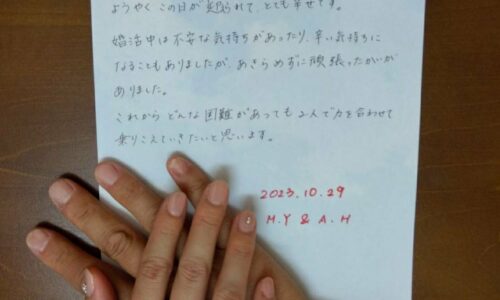 ようやくこの日が迎えられて、とても幸せです。
婚活中は不安な気持ちがあったり、辛い気持ちに
なることもありましたが、あきらめずに頑張ったかいが
ありました。
これからどんな困難があっても2人で力を合わせて
乗りこえていきたいと思います。
2023.10.29
M.Y & A.H